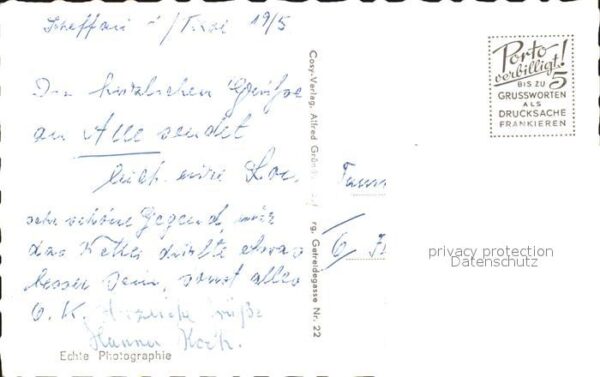 Scheffau i/Tirol 19/5
Die herzlichen Grüße
an Alle sendet
euch eure
sehr schöne Gegend, nur
das Wetter dürfte etwas
besser sein, sonst alles
O.K. Herzliche Grüße
Hanna Koch.
Echte Photographie
Cosy-Verlag, Alfred
rg, Getreidegasse Nr. 22
Porto
verbilligt!
BIS ZU 5
GRUSSWORTEN
ALS
DRUCKSACHE
FRANKIEREN
6/
privacy protection
Datenschutz